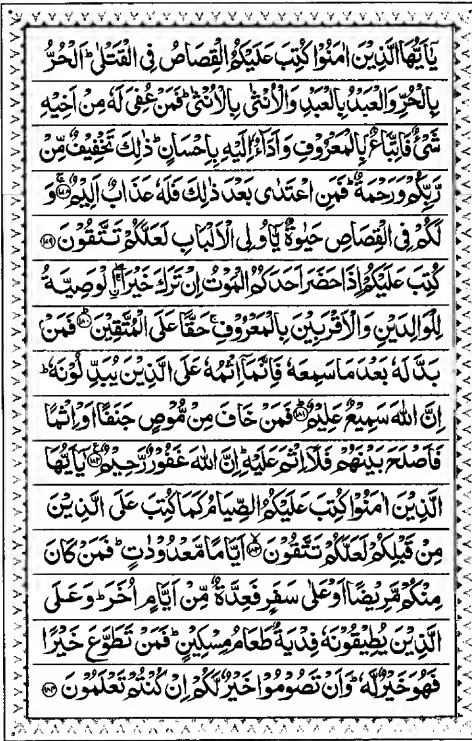 يٰۤاَيُّهَا الَّذِيْنَ اٰمَنُوْا كُتِبَ عَلَيْكُمُ الْقِصَاصُ فِى الْقَتْلٰىؕ اَلْحُرُّ
بِالْحُرِّ وَالْعَبْدُ بِالْعَبْدِ وَالْاُنْثٰى بِالْاُنْثٰىؕ فَمَنْ عُفِىَ لَهٗ مِنْ اَخِيْهِ
شَىْءٌ فَاتِّبَاعٌۢ بِالْمَعْرُوْفِ وَاَدَآءٌ اِلَيْهِ بِاِحْسَانٍؕ ذٰلِكَ تَخْفِيْفٌ مِّنْ
رَّبِّكُمْ وَرَحْمَةٌؕ فَمَنِ اعْتَدٰى بَعْدَ ذٰلِكَ فَلَهٗ عَذَابٌ اَلِيْمٌۚ‏﴿۱۷۸﴾ وَ
لَكُمْ فِى الْقِصَاصِ حَيٰوةٌ يّٰۤاُولِى الْاَلْبَابِ لَعَلَّكُمْ تَتَّقُوْنَ ﴿۱۷۹﴾
كُتِبَ عَلَيْكُمْ اِذَا حَضَرَ اَحَدَكُمُ الْمَوْتُ اِنْ تَرَكَ خَيْرَاۖۚ اۨلْوَصِيَّةُ
لِلْوَالِدَيْنِ وَالْاَقْرَبِيْنَ بِالْمَعْرُوْفِۚ حَقًّا عَلَى الْمُتَّقِيْنَؕ ﴿۱۸۰﴾ فَمَنْۢ
بَدَّلَهٗ بَعْدَ مَا سَمِعَهٗ فَاِنَّمَاۤ اِثْمُهٗ عَلَى الَّذِيْنَ يُبَدِّلُوْنَهٗؕ
اِنَّ اللّٰهَ سَمِيْعٌ عَلِيْمٌؕ ﴿۱۸۱﴾ فَمَنْ خَافَ مِنْ مُّوْصٍ جَنَفًا اَوْ اِثْمًا
فَاَصْلَحَ بَيْنَهُمْ فَلَاۤ اِثْمَ عَلَيْهِؕ اِنَّ اللّٰهَ غَفُوْرٌ رَّحِيْمٌ ﴿۱۸۲﴾ يٰۤاَيُّهَا
الَّذِيْنَ اٰمَنُوْا كُتِبَ عَلَيْكُمُ الصِّيَامُ كَمَا كُتِبَ عَلَى الَّذِيْنَ
مِنْ قَبْلِكُمْ لَعَلَّكُمْ تَتَّقُوْنَۙ ﴿۱۸۳﴾ اَيَّامًا مَّعْدُوْدٰتٍؕ فَمَنْ كَانَ
مِنْكُمْ مَّرِيْضًا اَوْ عَلٰى سَفَرٍ فَعِدَّةٌ مِّنْ اَيَّامٍ اُخَرَؕ وَعَلَى
الَّذِيْنَ يُطِيْقُوْنَهٗ فِدْيَةٌ طَعَامُ مِسْكِيْنٍؕ فَمَنْ تَطَوَّعَ خَيْرًا
فَهُوَ خَيْرٌ لَّهٗؕ وَاَنْ تَصُوْمُوْا خَيْرٌ لَّكُمْ اِنْ كُنْتُمْ تَعْلَمُوْنَ ﴿۱۸۴﴾